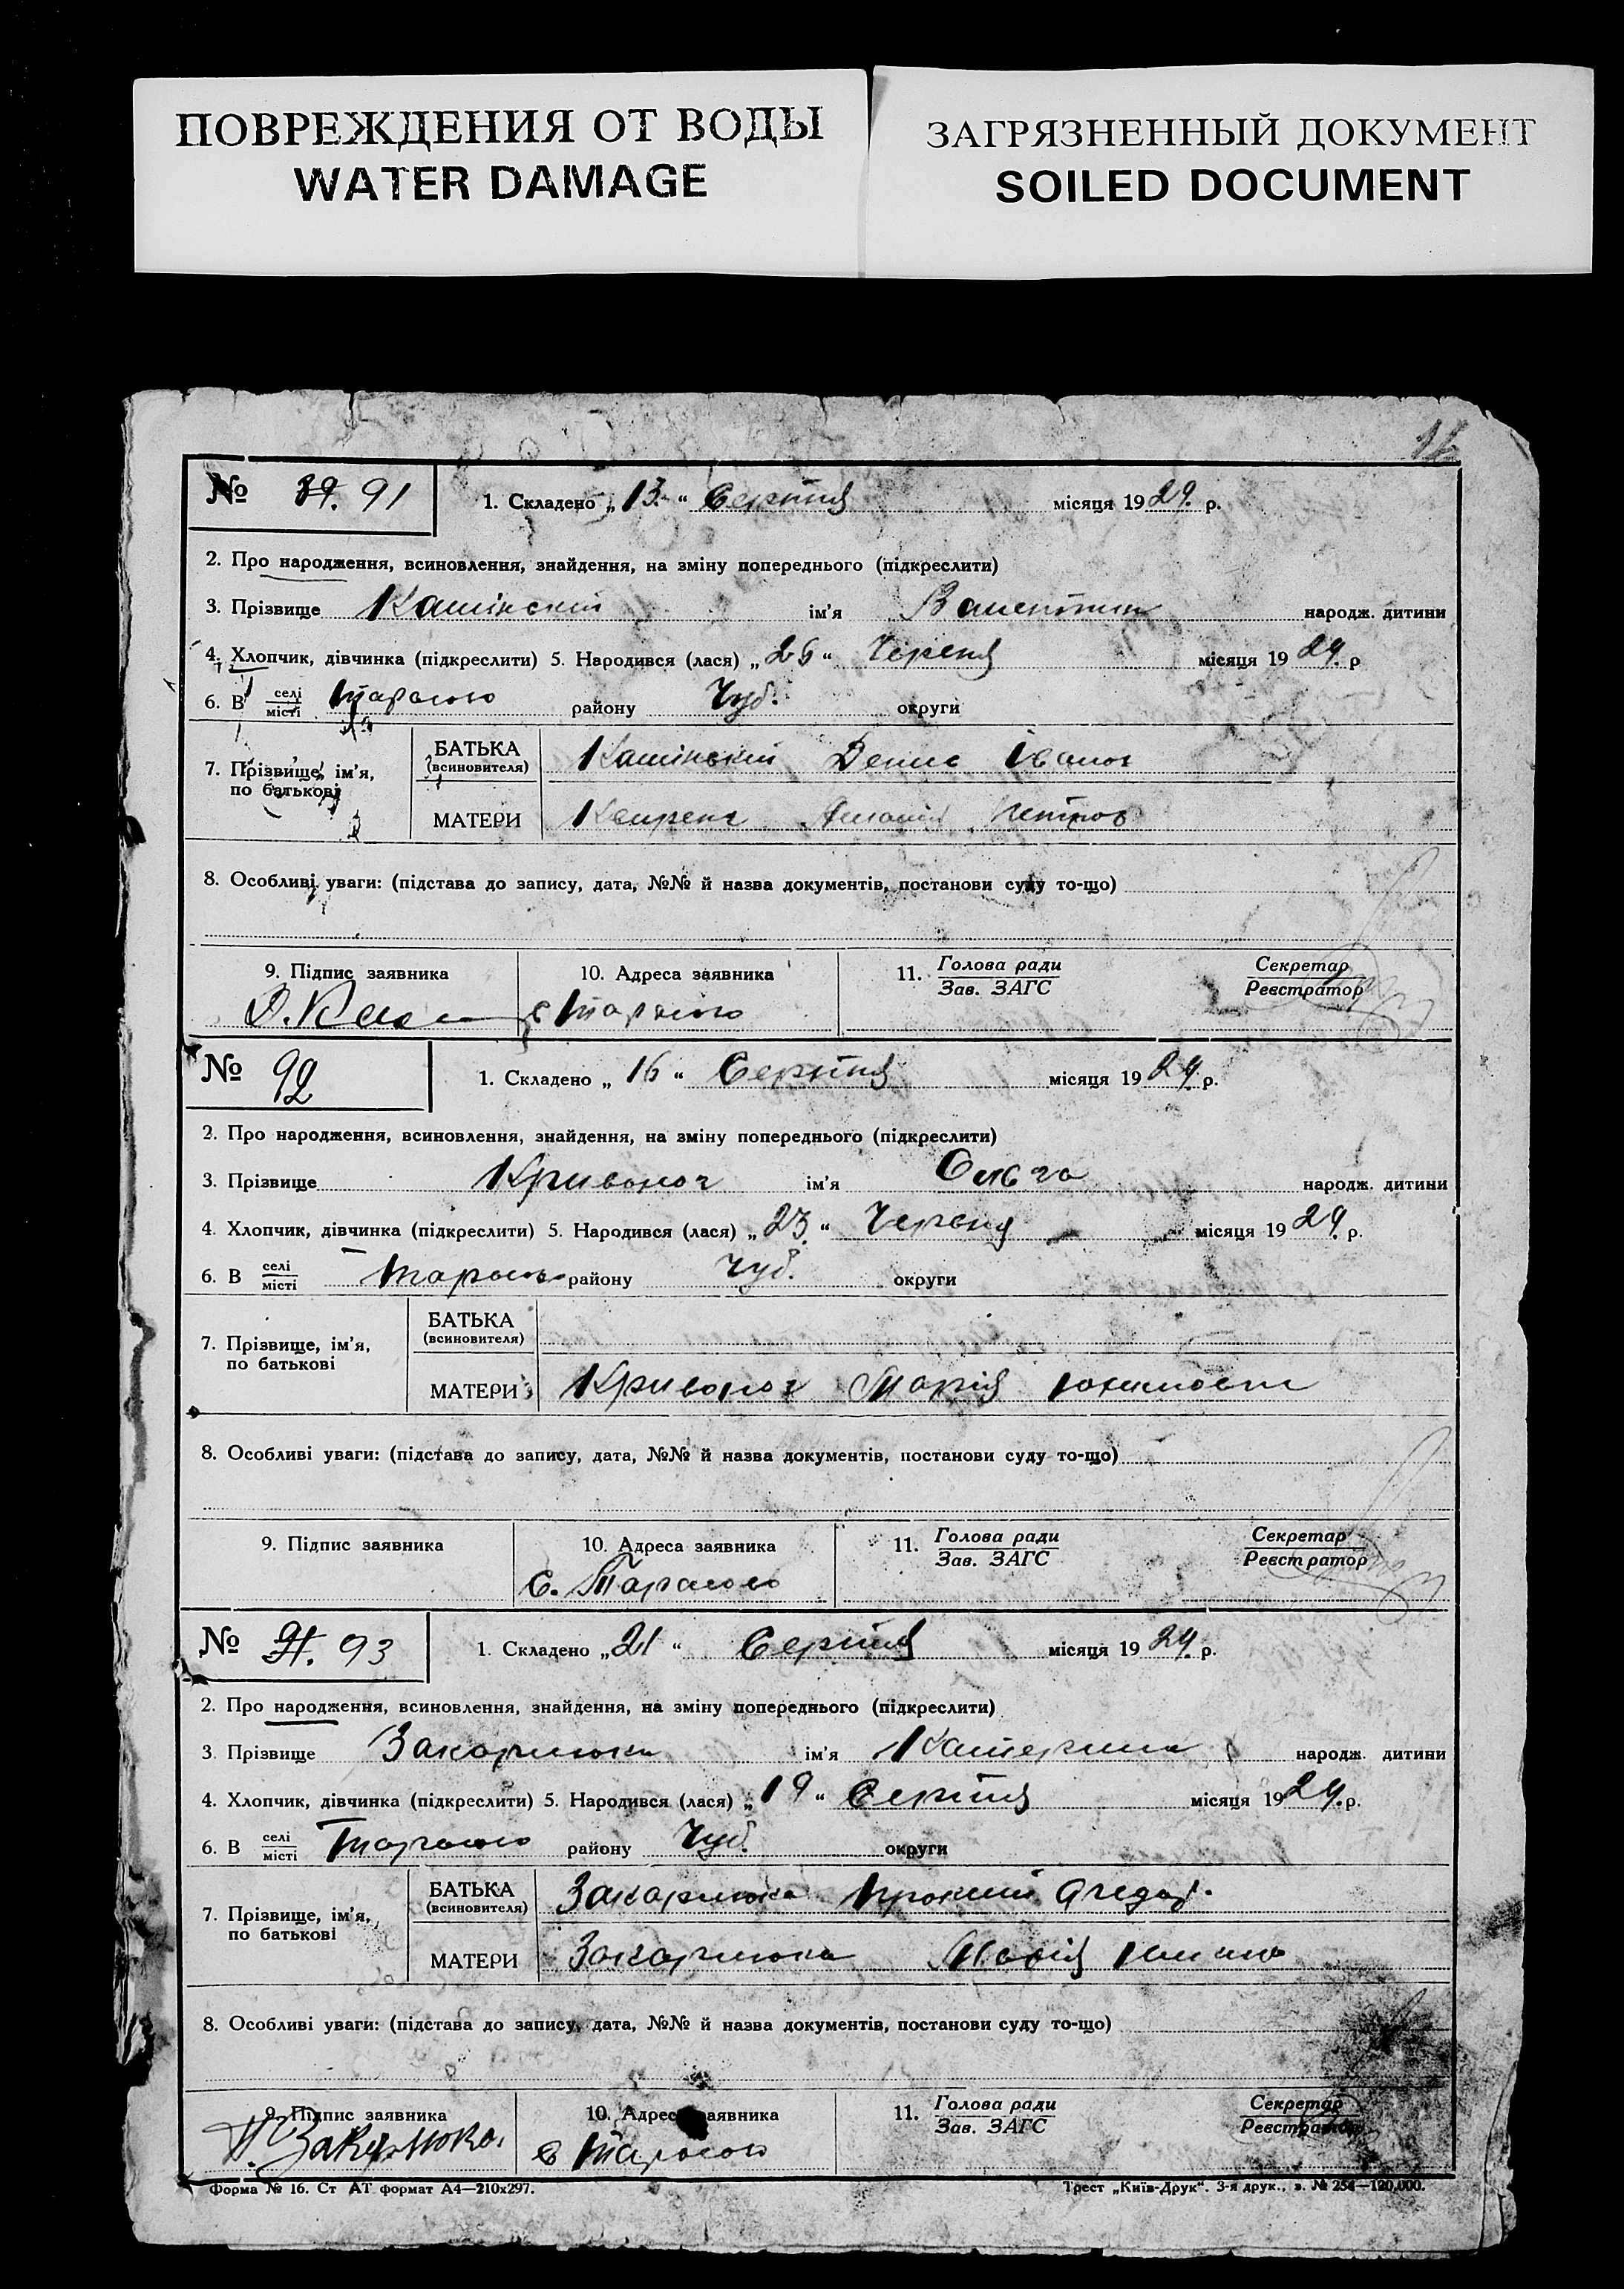 ПОВРЕЖДЕНИЯ ОТ ВОДЫ
WATER DAMAGE
ЗАГРЯЗНЕННЫЙ ДОКУМЕНТ
SOILED DOCUMENT
№ 91
1. Складено „13“ Серпня місяця 1929. р.
2. Про народження, всиновлення, знайдення, на зміну попереднього (підкреслити)
3. Прізвище Камінский ім'я Валентин народж. дитини
4. Хлопчик, дівчинка (підкреслити) 5. Народився (лася) „ “ Червня місяця 1929. р
6. В селі місті району Чуб. округи
7. Прізвище, ім'я, по батькові
БАТЬКА (всиновителя) Камінский Денис Іванов
МАТЕРИ Петров
8. Особливі уваги: (підстава до запису, дата, №№ й назва документів, постанови суду то-що)
9. Підпис заявника
10. Адреса заявника
11. Голова ради Зав. ЗАГС
Секретар Реєстратор
№ 92
1. Складено „16“ Серпня місяця 1929. р.
2. Про народження, всиновлення, знайдення, на зміну попереднього (підкреслити)
3. Прізвище Кривоног ім'я Ольга народж. дитини
4. Хлопчик, дівчинка (підкреслити) 5. Народився (лася) „23“ Червня місяця 1929. р.
6. В селі місті району Чуб. округи
7. Прізвище, ім'я, по батькові
БАТЬКА (всиновителя)
МАТЕРИ Кривоног Марія
8. Особливі уваги: (підстава до запису, дата, №№ й назва документів, постанови суду то-що)
9. Підпис заявника
10. Адреса заявника
с.
11. Голова ради Зав. ЗАГС
Секретар Реєстратор
№ 93
1. Складено „21“ Серпня місяця 1929. р.
2. Про народження, всиновлення, знайдення, на зміну попереднього (підкреслити)
3. Прізвище Закарлюка ім'я Катерина народж. дитини
4. Хлопчик, дівчинка (підкреслити) 5. Народився (лася) „19“ Серпня місяця 1929. р.
6. В селі місті району Чуб. округи
7. Прізвище, ім'я, по батькові
БАТЬКА (всиновителя) Закарлюка
МАТЕРИ Закарлюка Марія
8. Особливі уваги: (підстава до запису, дата, №№ й назва документів, постанови суду то-що)
9. Підпис заявника
10. Адреса заявника
11. Голова ради Зав. ЗАГС
Секретар Реєстратор
Закарлюка.
Форма № 16. Ст АТ формат А4—210х297.
Трест „Київ-Друк“. 3-я друк., з. № 254—120,000.